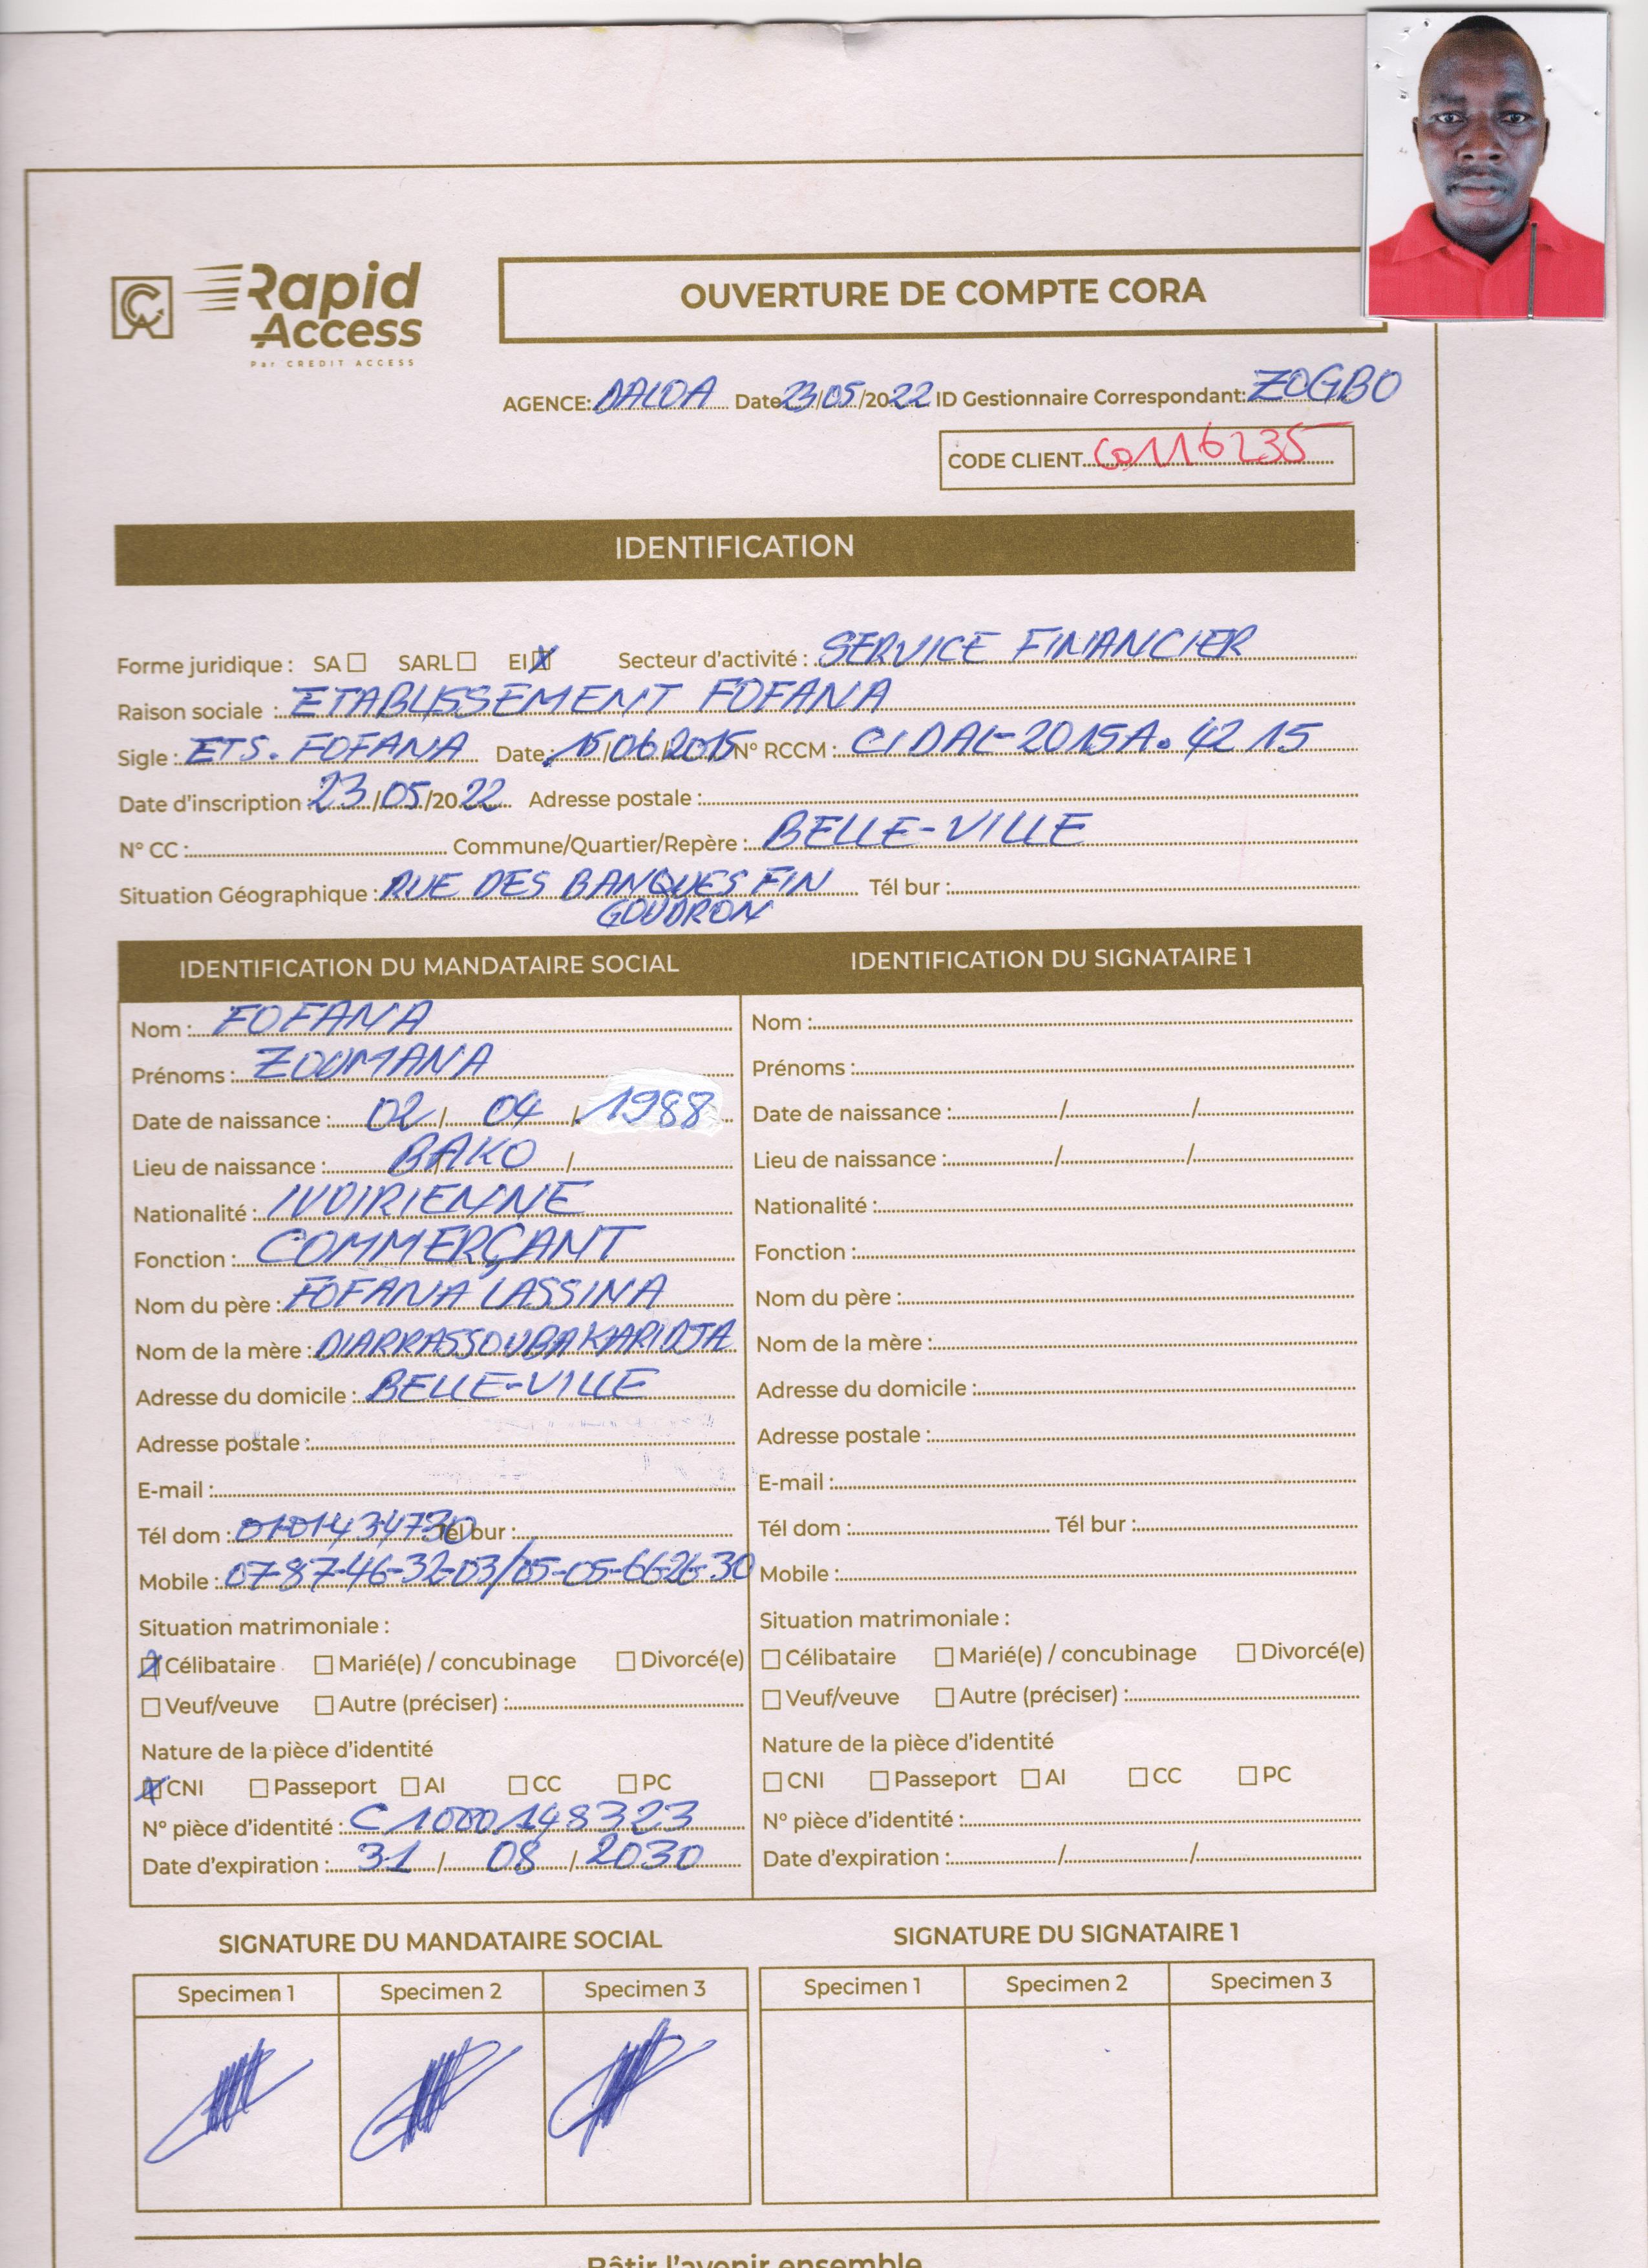 Rapid
Access
Par CREDIT ACCESS
OUVERTURE DE COMPTE CORA
AGENCE: DALOA Date 23/05/2022 ID Gestionnaire Correspondant: ZOGBO
CODE CLIENT 60116235
IDENTIFICATION
Forme juridique : SA SARL EI X Secteur d'activité : SERVICE FINANCIER
Raison sociale : ETABLISSEMENT FOFANA
Sigle : ETS. FOFANA Date : 15/06/2015 N° RCCM : CI DAL-2015A. 4215
Date d'inscription : 23/05/2022 Adresse postale :
N° CC : Commune/Quartier/Repère : BELLE-VILLE
Situation Géographique : RUE DES BANQUES FIN Tél bur :
GOUDRON
IDENTIFICATION DU MANDATAIRE SOCIAL
Nom : FOFANA
Prénoms : ZOUMANA
Date de naissance : 02 / 04 / 1988
Lieu de naissance : BAKO /
Nationalité : IVOIRIENNE
Fonction : COMMERÇANT
Nom du père : FOFANA LASSINA
Nom de la mère : DIARRASSOUBA KARIDJA
Adresse du domicile : BELLE-VILLE
Adresse postale :
E-mail :
Tél dom : 0101434730 Tél bur :
Mobile : 07-87-46-32-03/05-05-66-26-30
Situation matrimoniale :
X Célibataire Marié(e) / concubinage Divorcé(e)
Veuf/veuve Autre (préciser) :
Nature de la pièce d'identité
X CNI Passeport AI CC PC
N° pièce d'identité : C1000148323
Date d'expiration : 31 / 08 / 2030
IDENTIFICATION DU SIGNATAIRE 1
Nom :
Prénoms :
Date de naissance : / /
Lieu de naissance : / /
Nationalité :
Fonction :
Nom du père :
Nom de la mère :
Adresse du domicile :
Adresse postale :
E-mail :
Tél dom : Tél bur :
Mobile :
Situation matrimoniale :
Célibataire Marié(e) / concubinage Divorcé(e)
Veuf/veuve Autre (préciser) :
Nature de la pièce d'identité
CNI Passeport AI CC PC
N° pièce d'identité :
Date d'expiration : / /
SIGNATURE DU MANDATAIRE SOCIAL
Specimen 1 Specimen 2 Specimen 3
SIGNATURE DU SIGNATAIRE 1
Specimen 1 Specimen 2 Specimen 3
Bâtir l'avenir ensemble